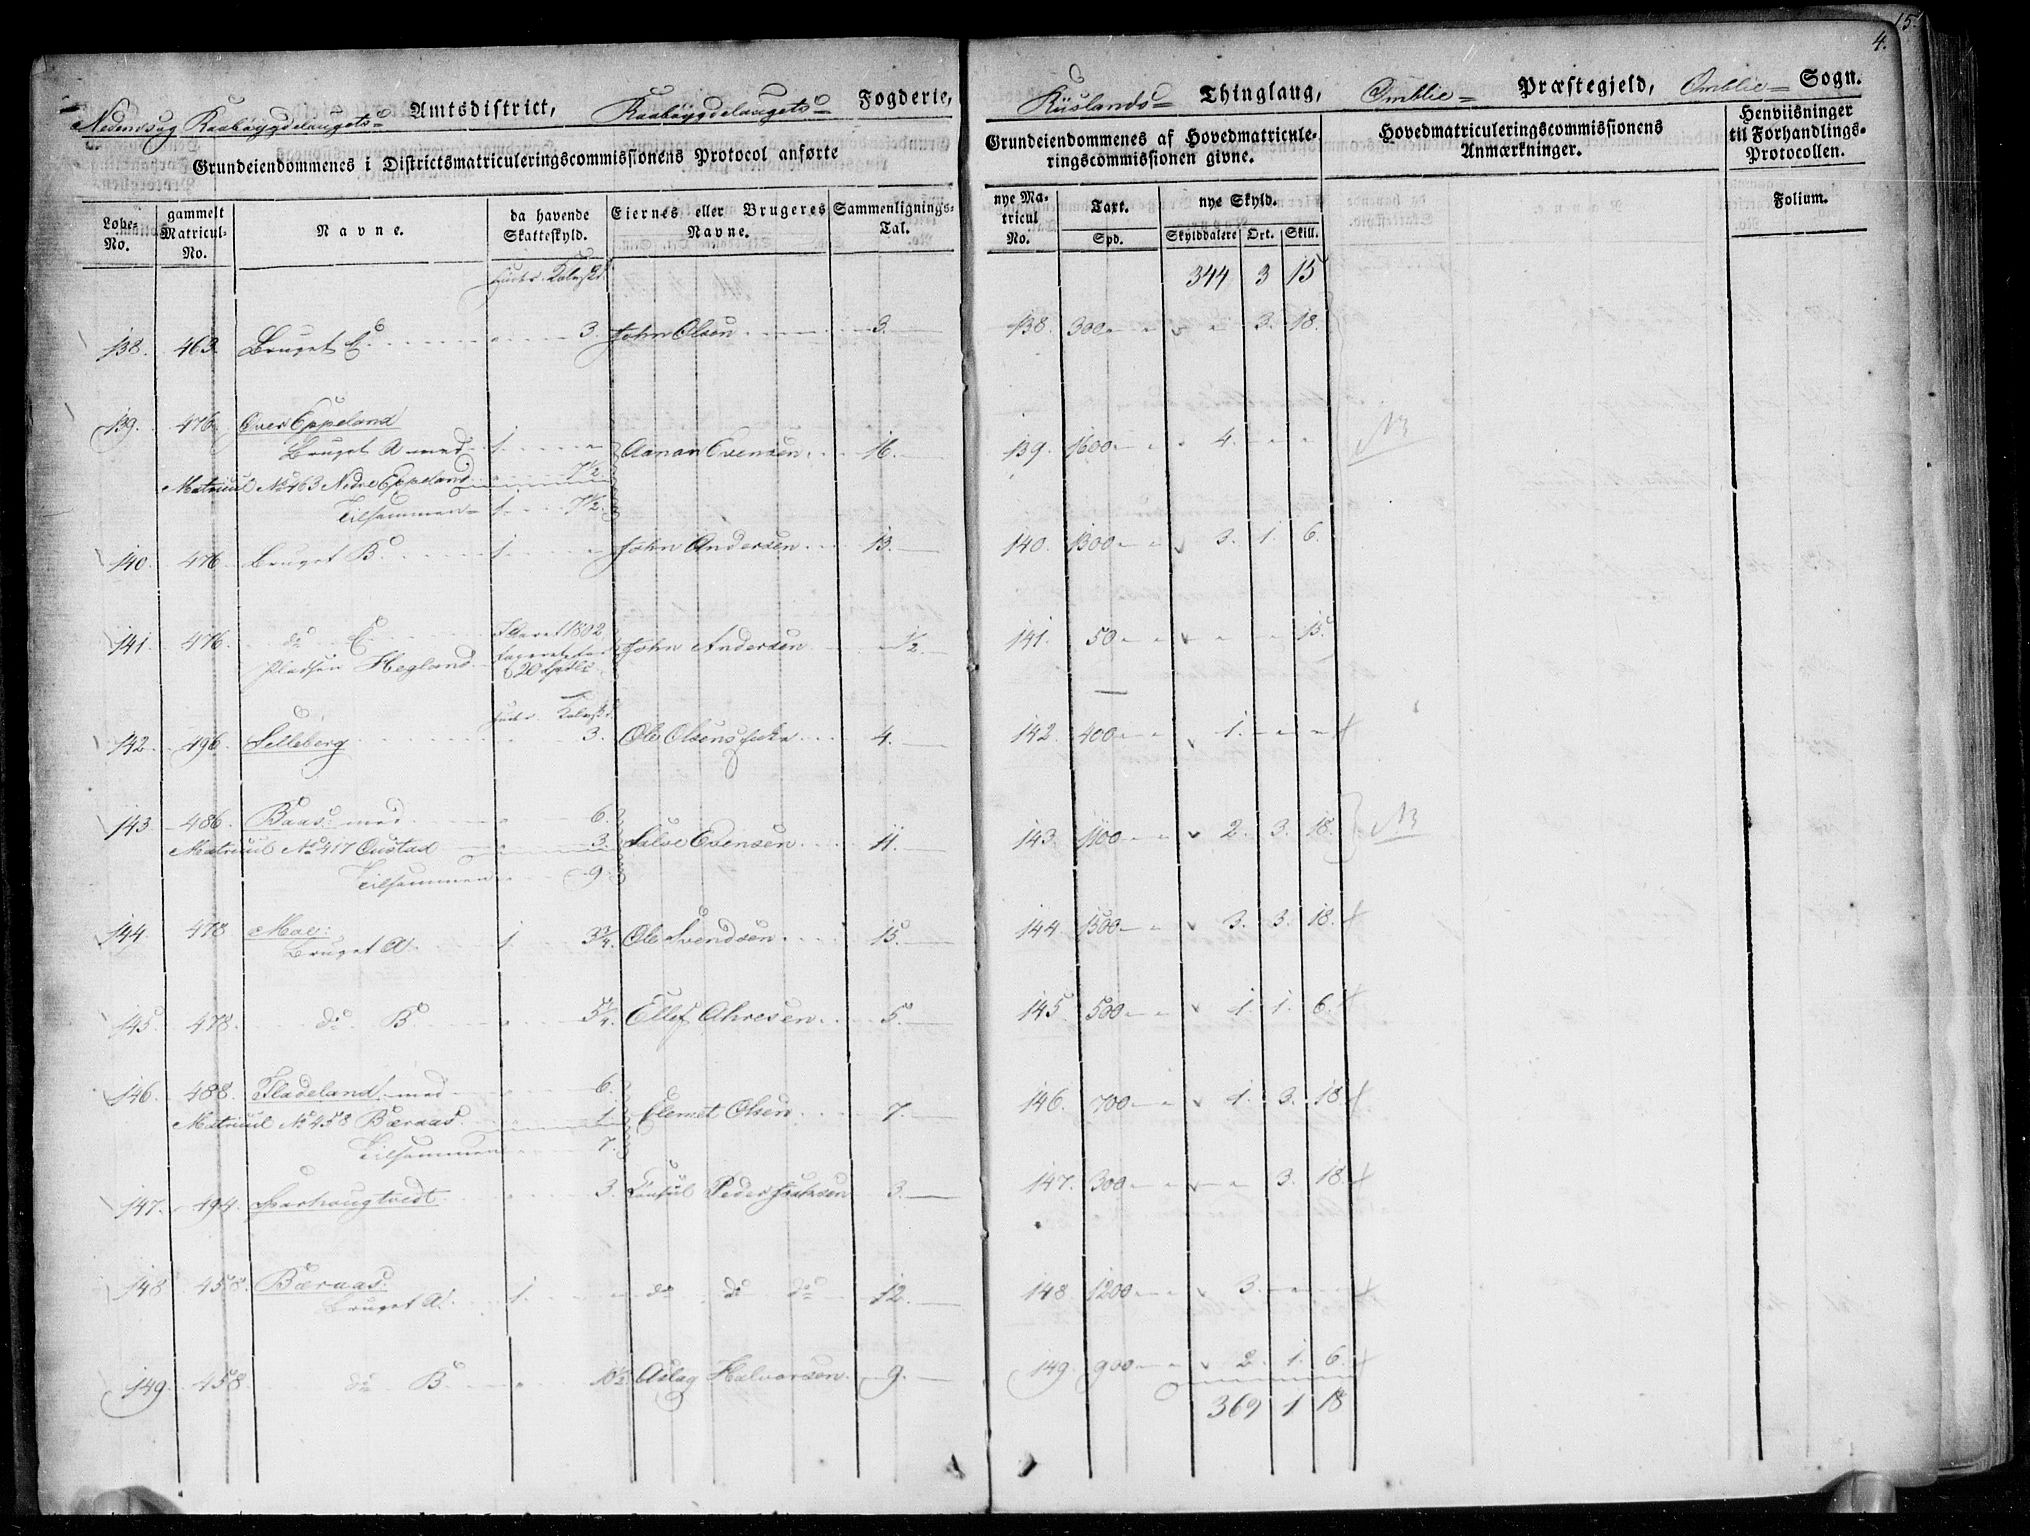 15.
4.
Nedenes og Raabøygdelaugets Amtsdistrict, Raabøygdelaugets Fogderie,
Grundeiendommenes i Districtsmatriculeringscommissionens Protocol anførte
Lobe-No.
gammelt Matricul-No.
Navne.
da havende Skatteskyld.
Eiernes eller Brugeres Navne.
Sammenlignings-Tal.
138. 463. Bruget C. 3. John Olsen 3.
139. 476. Over Eppeland
Bruget A med 1. Aanon Evensen 16.
Matricul No 463 Nedre Eppeland 7 1/2.
Tilsammen 1. 7 1/2.
140. 476. Bruget B. 1. John Andersen 13.
141. 476. do C.
Pladsen Hegland 20 John Andersen 1/2
142. 496. Selleberg 3. Ole Olsens 4.
143. 486. Baas med 6.
Matricul No 417 Oustad 3. Salve Evensen 11.
Tilsammen 9.
144. 478. Moe:
Bruget A. 1. 3 3/4. Ole Svendsen 15.
145. 478. do B 5 1/4. Ellef Ahresen 5.
146. 488. Fladeland med 6.
Matricul No 458 Bæraas 1. Clemet Olsen 7.
Tilsammen 7.
147. 494. Harhougtvedt 3. Consul Peder 3.
148. 458. Bæraas:
Bruget A. 1. do do do 12.
149. 458. do B. 10 1/2. Aslag Halvorsen 9.
Thinglaug, Omblie Præstegjeld, Omblie Sogn.
Grundeiendommenes af Hovedmatriculeringscommissionen givne.
Hovedmatriculeringscommissionens Anmærkninger.
Henviisninger til Forhandlings-Protocollen.
nye Matricul No.
Taxt.
Spd.
nye Skyld.
Skylddalere Ort. Skill.
Folium.
344 3 15
138. 300 3. 18.
139. 1600 4. NB
140. 1300 3. 1. 6.
141. 50 15.
142. 400 1.
143. 1100 2. 3. 18. NB
144. 1500 3. 3. 18.
145. 500 1. 1. 6.
146. 700 1. 3. 18.
147. 300 3. 18.
148. 1200 3.
149. 900 2. 1. 6.
369 1 18